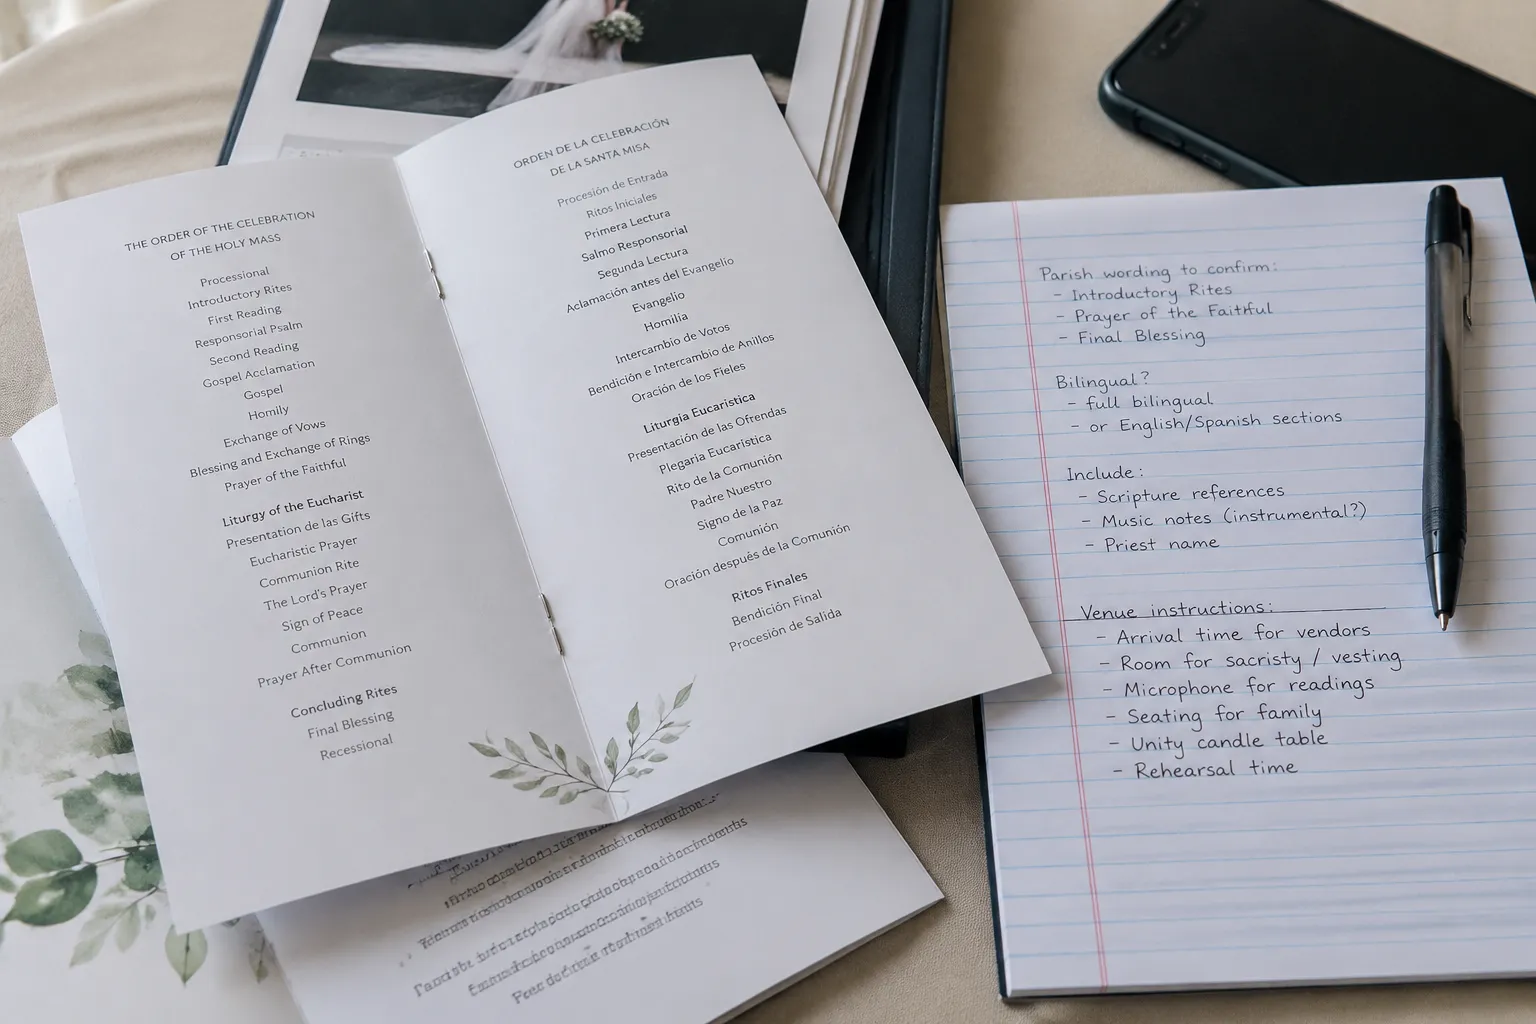 THE ORDER OF THE CELEBRATION
OF THE HOLY MASS
Processional
Introductory Rites
First Reading
Responsorial Psalm
Second Reading
Gospel Acclamation
Gospel
Homily
Exchange of Vows
Blessing and Exchange of Rings
Prayer of the Faithful
Liturgy of the Eucharist
Presentation de las Gifts
Eucharistic Prayer
Communion Rite
The Lord's Prayer
Sign of Peace
Communion
Prayer After Communion
Concluding Rites
Final Blessing
Recessional
ORDEN DE LA CELEBRACIÓN
DE LA SANTA MISA
Procesión de Entrada
Ritos Iniciales
Primera Lectura
Salmo Responsorial
Segunda Lectura
Aclamación antes del Evangelio
Evangelio
Homilía
Intercambio de Votos
Bendición e Intercambio de Anillos
Oración de los Fieles
Liturgia Eucarística
Presentación de las Ofrendas
Plegaria Eucarística
Rito de la Comunión
Padre Nuestro
Signo de la Paz
Comunión
Oración después de la Comunión
Ritos Finales
Bendición Final
Procesión de Salida
Parish wording to confirm:
- Introductory Rites
- Prayer of the Faithful
- Final Blessing
Bilingual?
- full bilingual
- or English/Spanish sections
Include:
- Scripture references
- Music notes (instrumental?)
- Priest name
Venue instructions:
- Arrival time for vendors
- Room for sacristy / vesting
- Microphone for readings
- Seating for family
- Unity candle table
- Rehearsal time